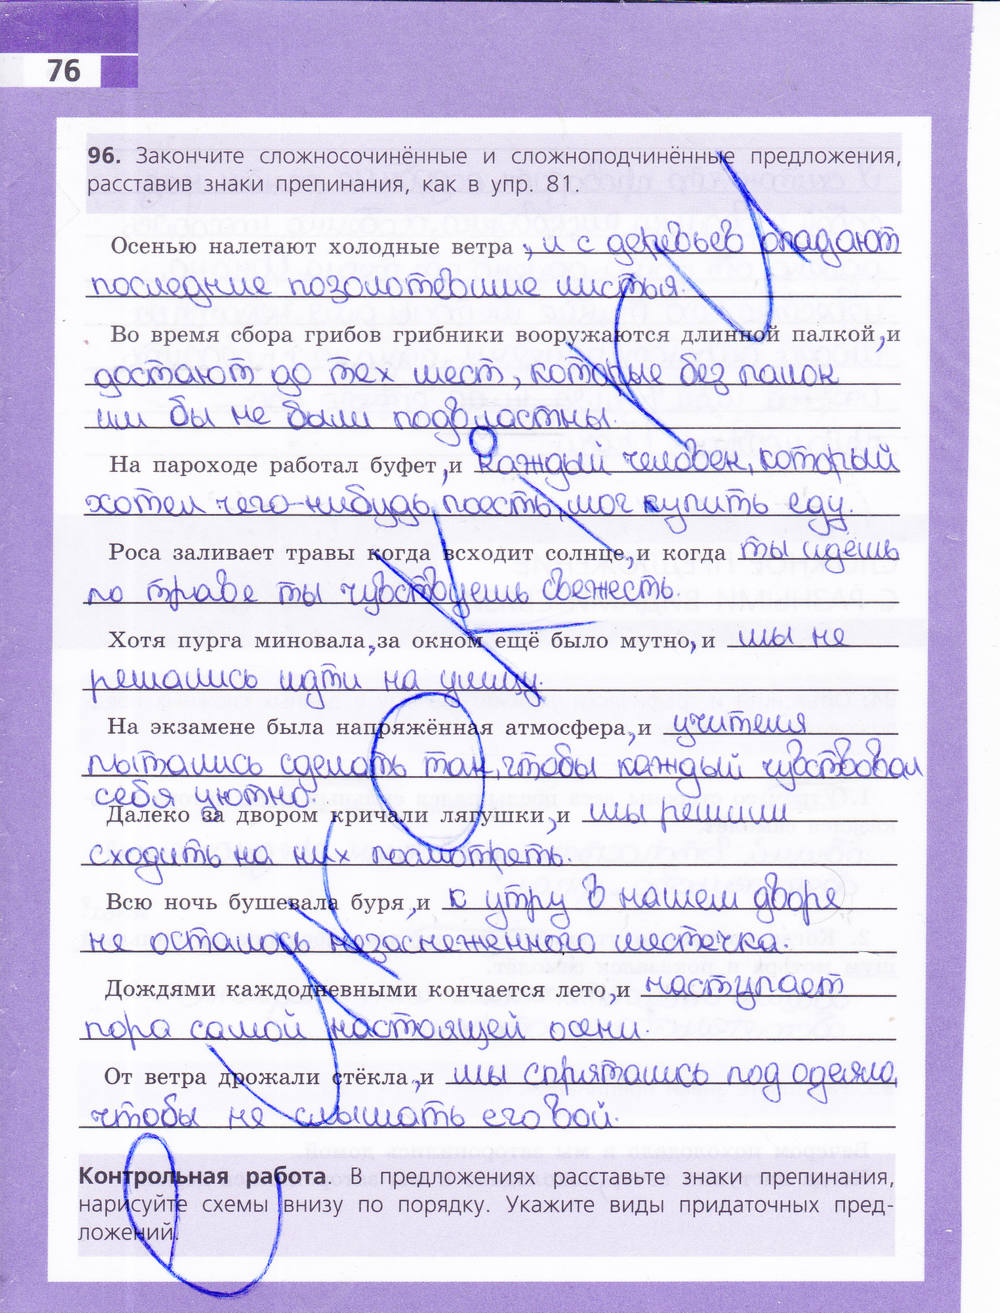 76
96. Закончите сложносочинённые и сложноподчинённые предложения,
расставив знаки препинания, как в упр. 81.
Осенью налетают холодные ветра, и с деревьев опадают
последние позолотевшие листья.
Во время сбора грибов грибники вооружаются длинной палкой, и
достают до тех мест, которые без палок
им бы не были подвластны.
На пароходе работал буфет, и каждый человек, который
хотел чего-нибудь поесть, мог купить еду.
Роса заливает травы когда всходит солнце, и когда ты идёшь
по траве ты чувствуешь свежесть.
Хотя пурга миновала, за окном ещё было мутно, и мы не
решались идти на улицу.
На экзамене была напряжённая атмосфера, и учителя
пытались сделать так, чтобы каждый чувствовал
себя уютно.
Далеко за двором кричали лягушки, и мы решили
сходить на них посмотреть.
Всю ночь бушевала буря, и к утру в нашем дворе
не осталось незаснеженного местечка.
Дождями каждодневными кончается лето, и наступает
пора самой настоящей осени.
От ветра дрожали стёкла, и мы спрятались под одеяло,
чтобы не слышать его вой.
Контрольная работа. В предложениях расставьте знаки препинания,
нарисуйте схемы внизу по порядку. Укажите виды придаточных пред-
ложений.